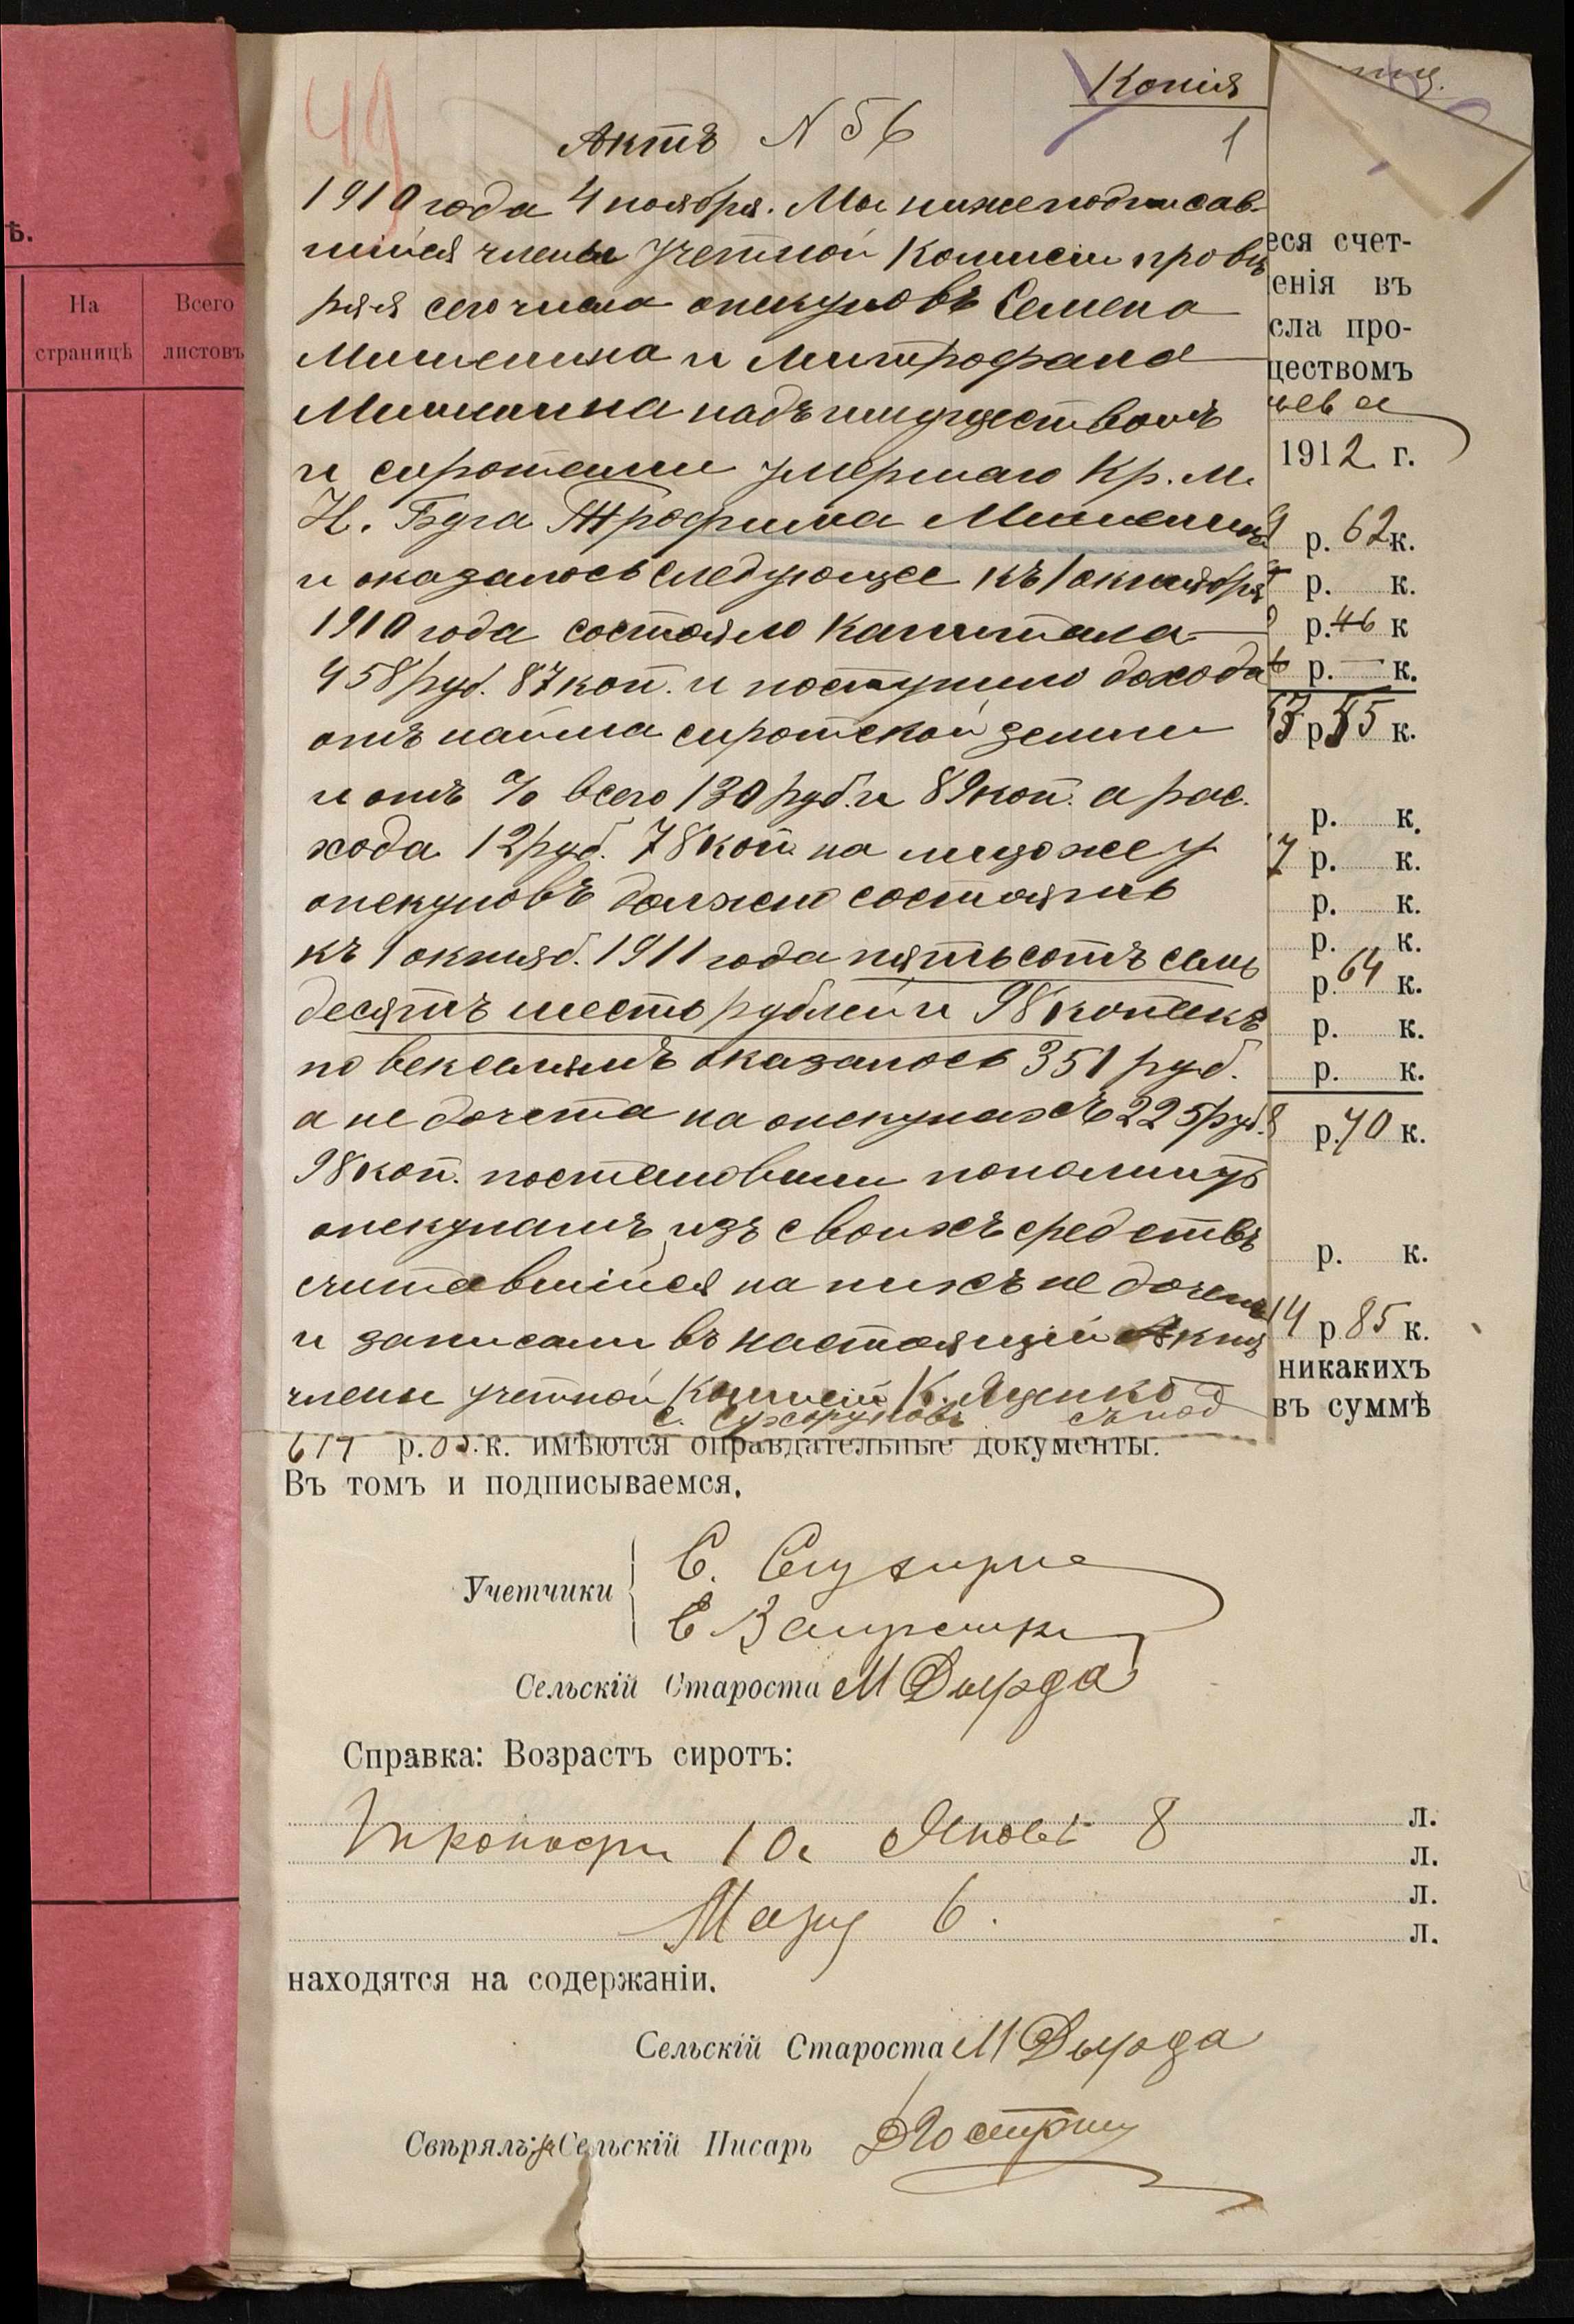 ѣ.
На
страницѣ
Всего
листовъ
49
Копія
1
Актъ N 56
1910 года 4 ноября. Мы нижеподписав-
шійся члены Учетной Комисіи провѣ
ряя сего числа опекуновъ Семена
Мишенина и Митрофана
Мишенина надъ имуществомъ
и сиротами умершаго Кр. м.
Н. Буга Трофима Мишенина
и оказалось следующее къ 1 октября
1910 года состояло капитала
458 руб. 87 коп. и поступило дохода
отъ найма сиротской земли
и отъ % всего 130 руб. и 89 коп. а рас.
хода 12 руб. 78 коп. на лицо же у
опекуновъ должно состоять
къ 1 октяб. 1911 года пятьсотъ семь
десятъ шесть рублей и 98 копѣекъ
по векселямъ оказалось 351 руб.
а не дочета на опекунахъ 225 руб.
98 коп. постановили пополнить
опекунамъ изъ своихъ средствъ
считавшійся на нихъ не дочетъ
и записали въ настоящій Актъ
члены учетной Комисіи К. Яценко
С. Сухоруковъ
еся счет-
енія въ
сла про-
цествомъ
1912 г.
р. 62 к.
р. к.
р. 46 к
р. — к.
р 55 к.
р. к.
7 р. к.
р. к.
р. к.
р. 64 к.
р. к.
р. к.
8 р. 40 к.
р. к.
14 р 85 к.
никакихъ
въ суммѣ
617 р. к. имѣются оправдательные документы.
Въ томъ и подписываемся.
Учетчики
С.
Е
Сельскій Староста М Дырда
Справка: Возрастъ сиротъ:
10. 8 л.
л.
6. л.
л.
находятся на содержаніи.
Сельскій Староста М Дырда
Свѣрялъ: Сельскій Писарь